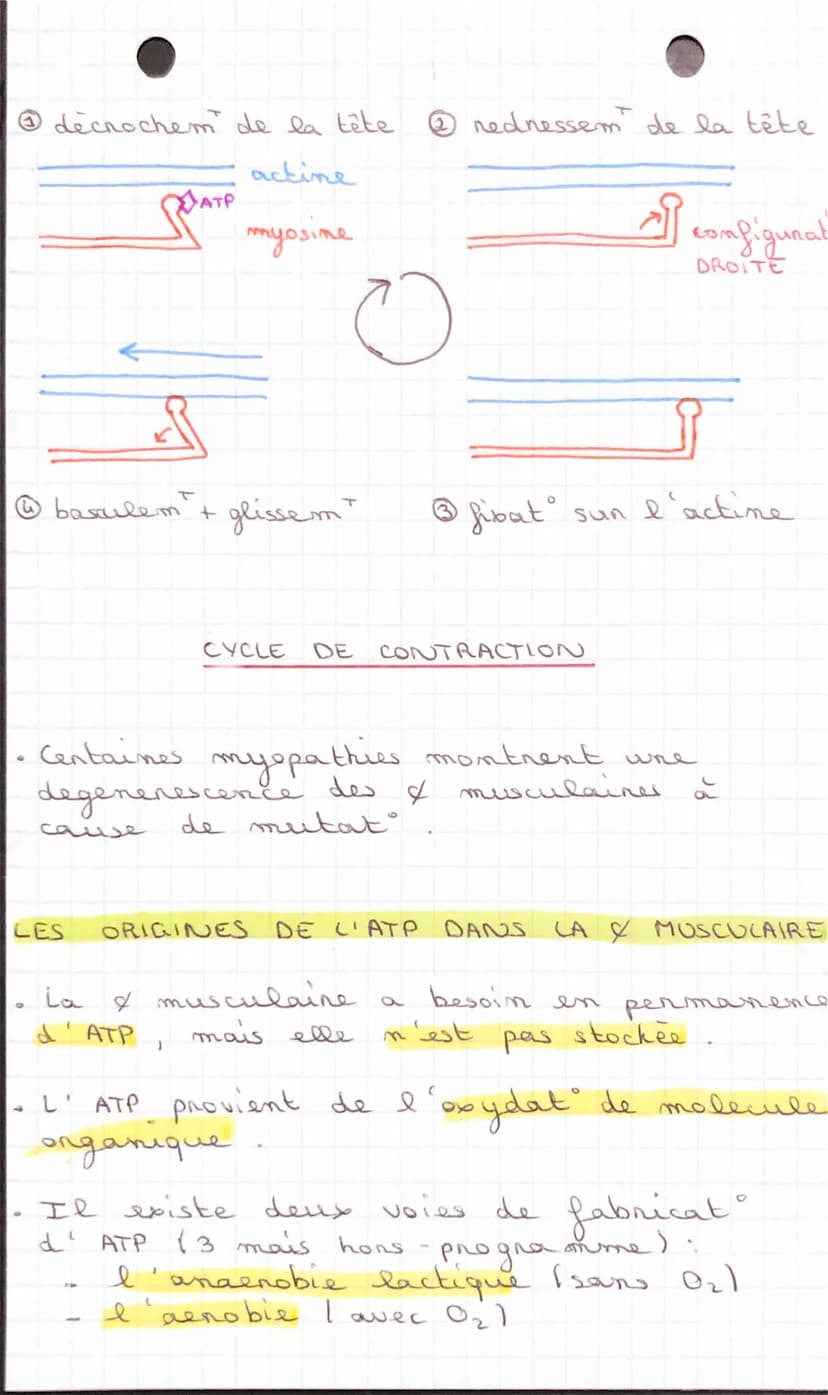 ① décrochem^T de la tête ② redressem^T de la tête
actine
ATP
myosine
configurat
DROITE
④ basculem^T + glissem^T ③ fixat° sur l'actine
CYCLE DE CONTRACTION
• Certaines myopathies montrent une
degenerescence des ¢ musculaires à
cause de mutat°.
LES ORIGINES DE L'ATP DANS LA ¢ MUSCULAIRE
• La ¢ musculaire a besoin en permanence
d'ATP, mais elle n'est pas stockée.
• L'ATP provient de l'oxydat° de molecule
organique.
• Il existe deux voies de fabricat°
d'ATP (3 mais hors-programme) :
- l'anaerobie lactique (sans O₂)
- l'aerobie (avec O₂)